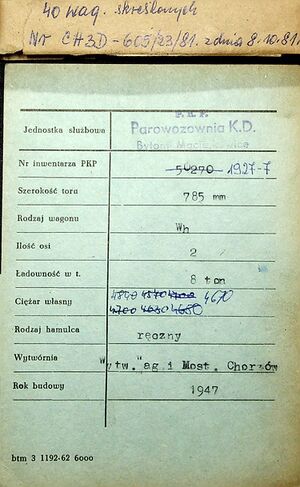 40 wag. skreślonych
Nr CH3D-605/23/81. z dnia 8.10.81.
P.K.P.
Jednostka służbowa Parowozownia K.D.
Bytom Maciejkowice
Nr inwentarza PKP 50270 1927-7
Szerokość toru 785 mm
Rodzaj wagonu Wh
Ilość osi 2
Ładowność w t. 8 ton
Ciężar własny 4840 4570 4700 4610
4700 4630 4650
Rodzaj hamulca ręczny
Wytwórnia Wytw. Wag. i Most. Chorzów
Rok budowy 1947
btm 3 1192-62 6000